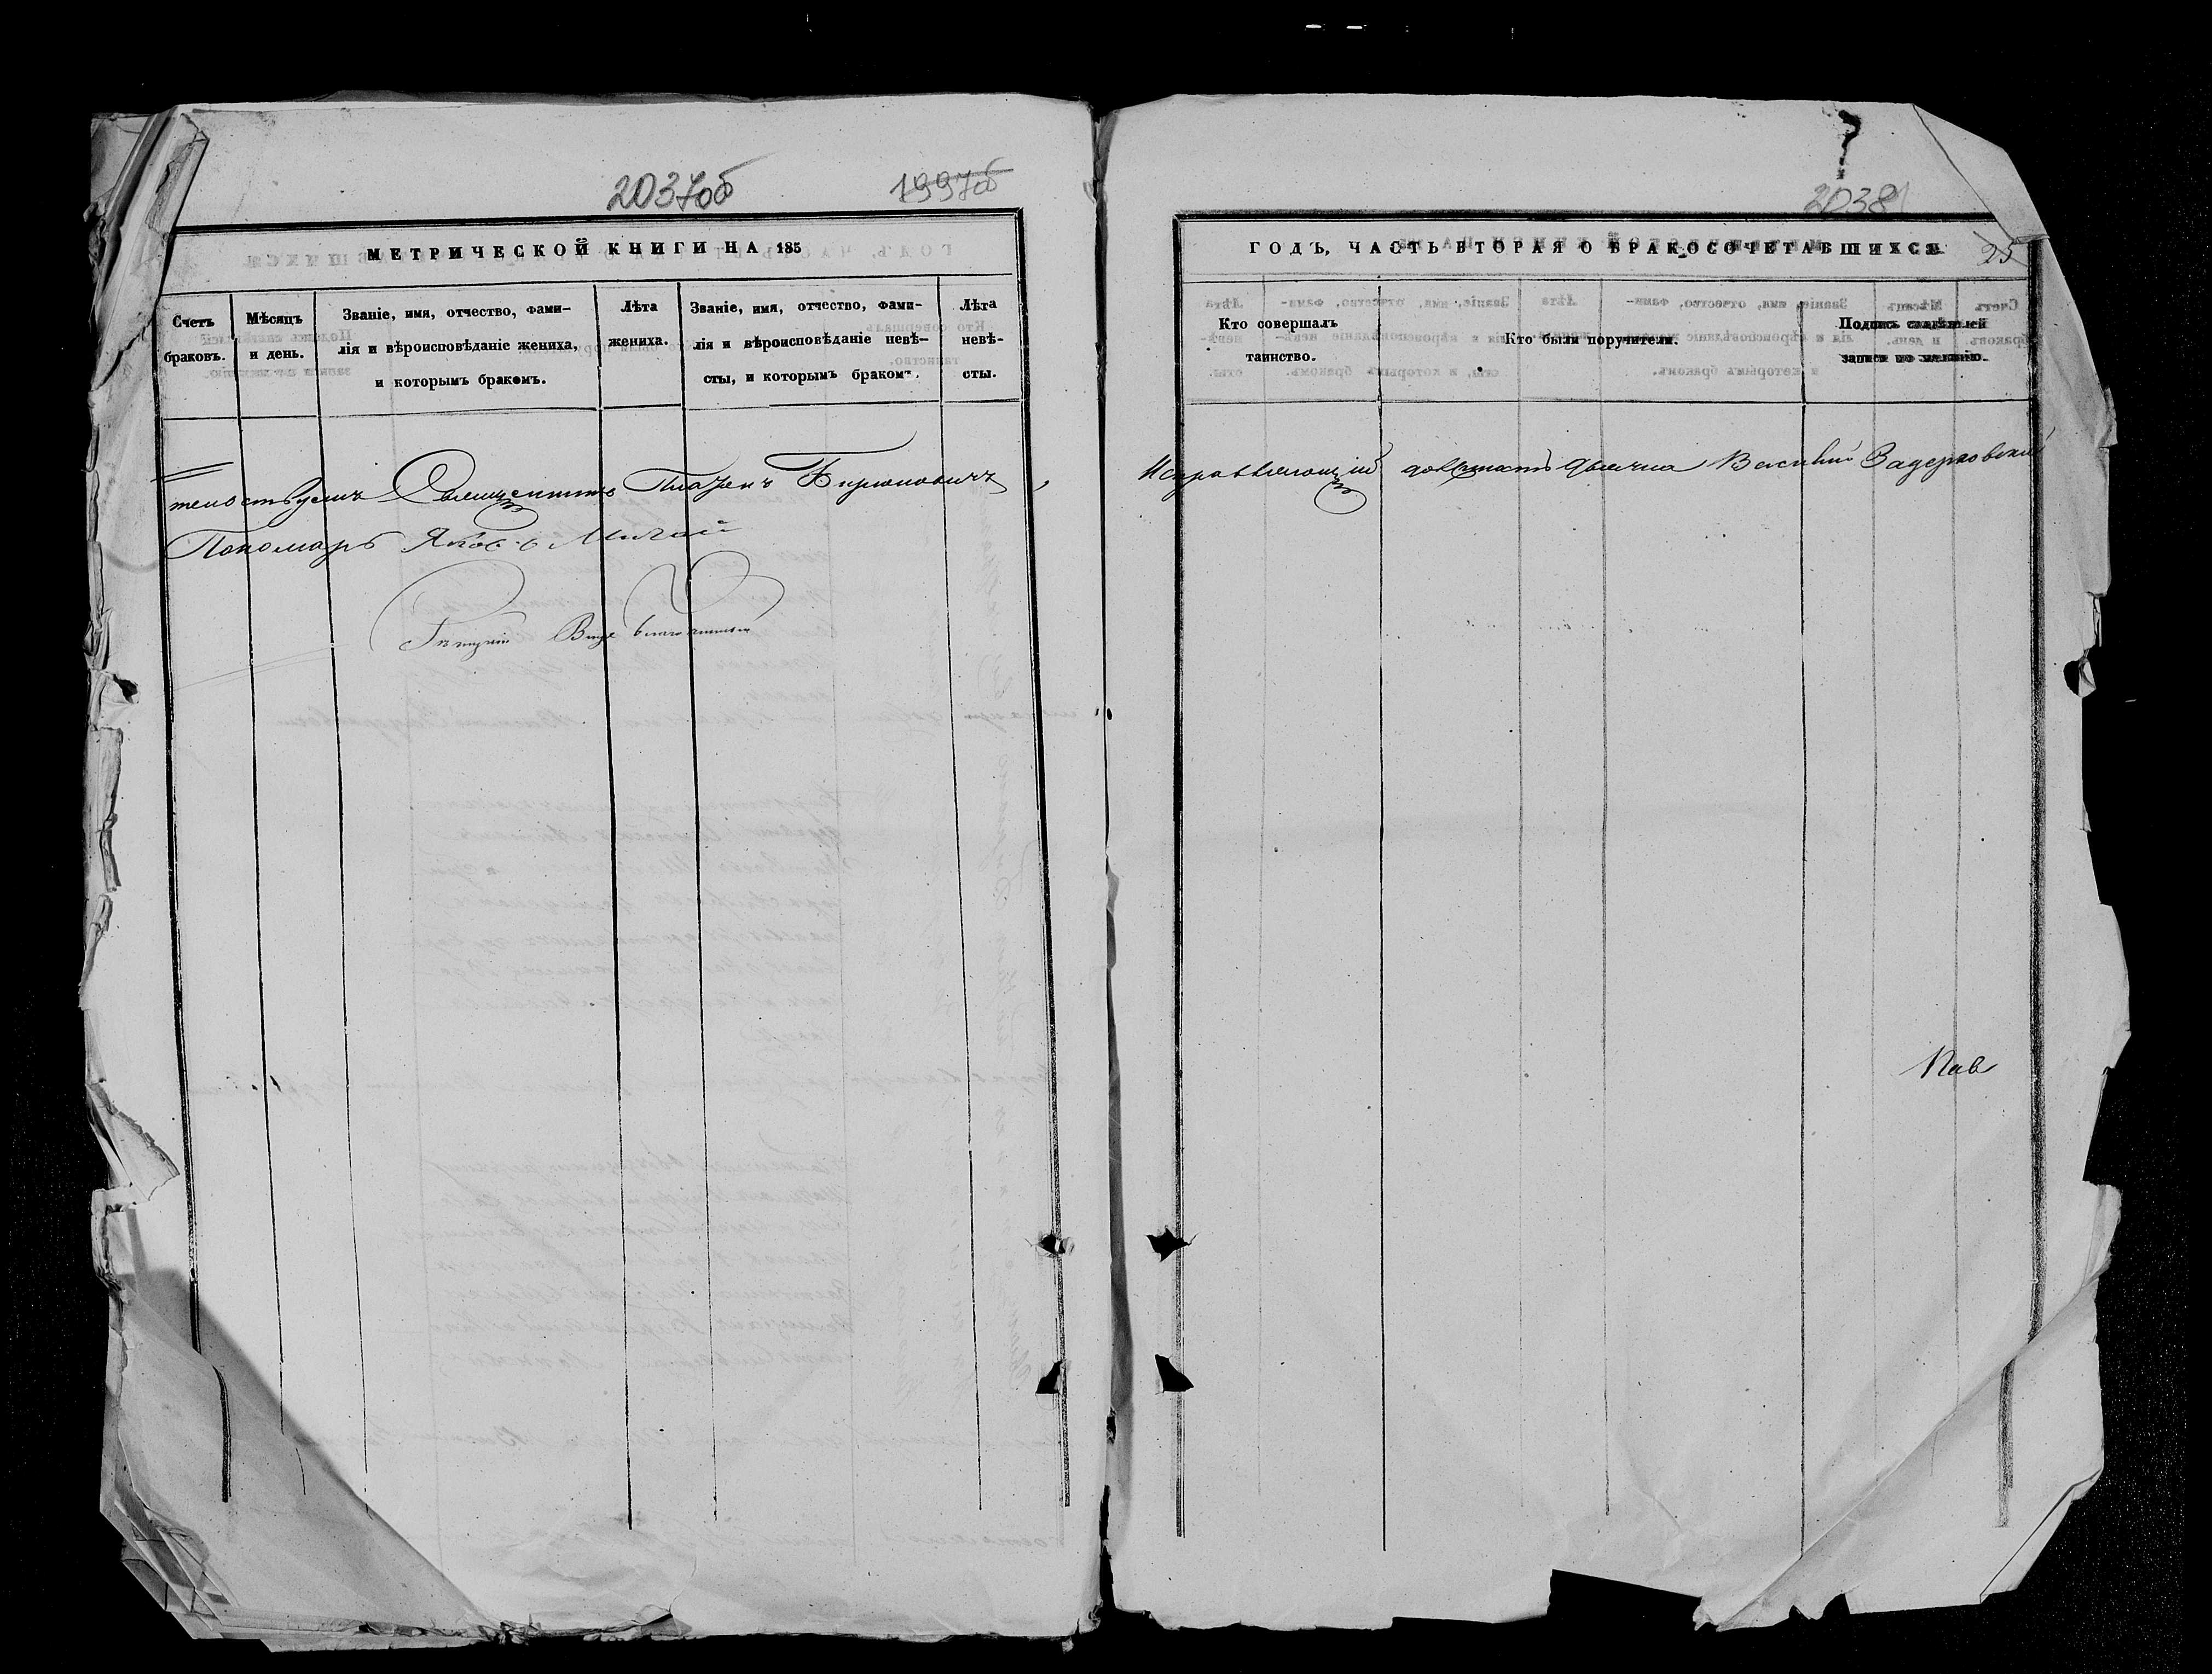 2037об
1997об
МЕТРИЧЕСКОЙ КНИГИ НА 185
Счетъ браковъ.
Мѣсяцъ и день.
Званіе, имя, отчество, фами-
лія и вѣроисповѣданіе жениха,
и которымъ бракомъ.
Лѣта жениха.
Званіе, имя, отчество, фами-
лія и вѣроисповѣданіе невѣ-
сты, и которымъ бракомъ.
Лѣта
невѣ-
сты.
Священникъ
Пономарь Яковъ
2038
ГОДЪ, ЧАСТЬ ВТОРАЯ О БРАКОСОЧЕТАВШИХСЯ
25
Кто совершалъ
таинство.
Кто были поручители.
Подпись свидѣтелей
записи по желанію.
Исправляющій должность дьячка Василій Задерковскій